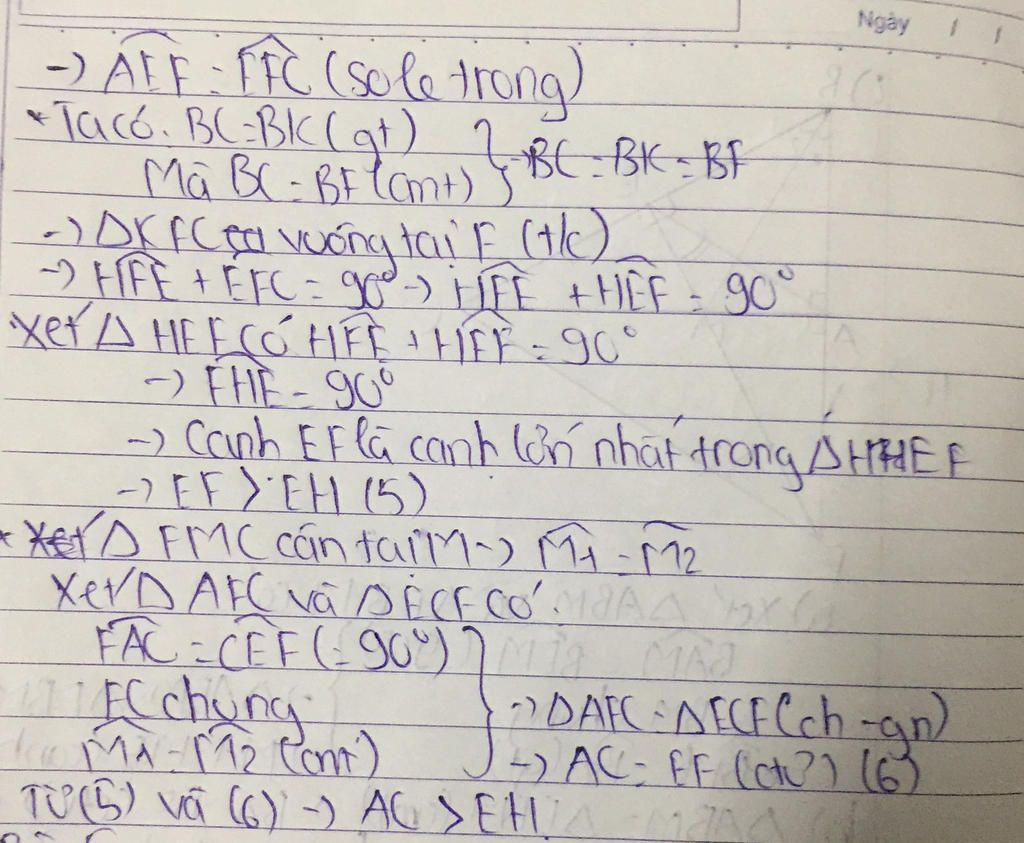 Ngày / /
→ AEF = EFC (so le trong)
* Ta có. BC=BK (gt)
Mà BC = BF (cmt) } → BC = BK = BF
→ ΔKFC vuông tại F (t/c)
→ HFE + EFC = 90° → HFE + HEF = 90°
* Xét Δ HEF Có HFE + HEF = 90°
→ FHE = 90°
→ Cạnh EF là cạnh lớn nhất trong ΔHEF
→ EF > EH (5)
* Xét Δ FMC cân tại M → M1 = M2
Xét Δ AFC và Δ ECF Có.
FAC = CEF (= 90°)
FC chung
M1 = M2 (cmt) } → ΔAFC = ΔECF (ch - gn)
→ AC = EF (6)
Từ (5) và (6) → AC > EH.